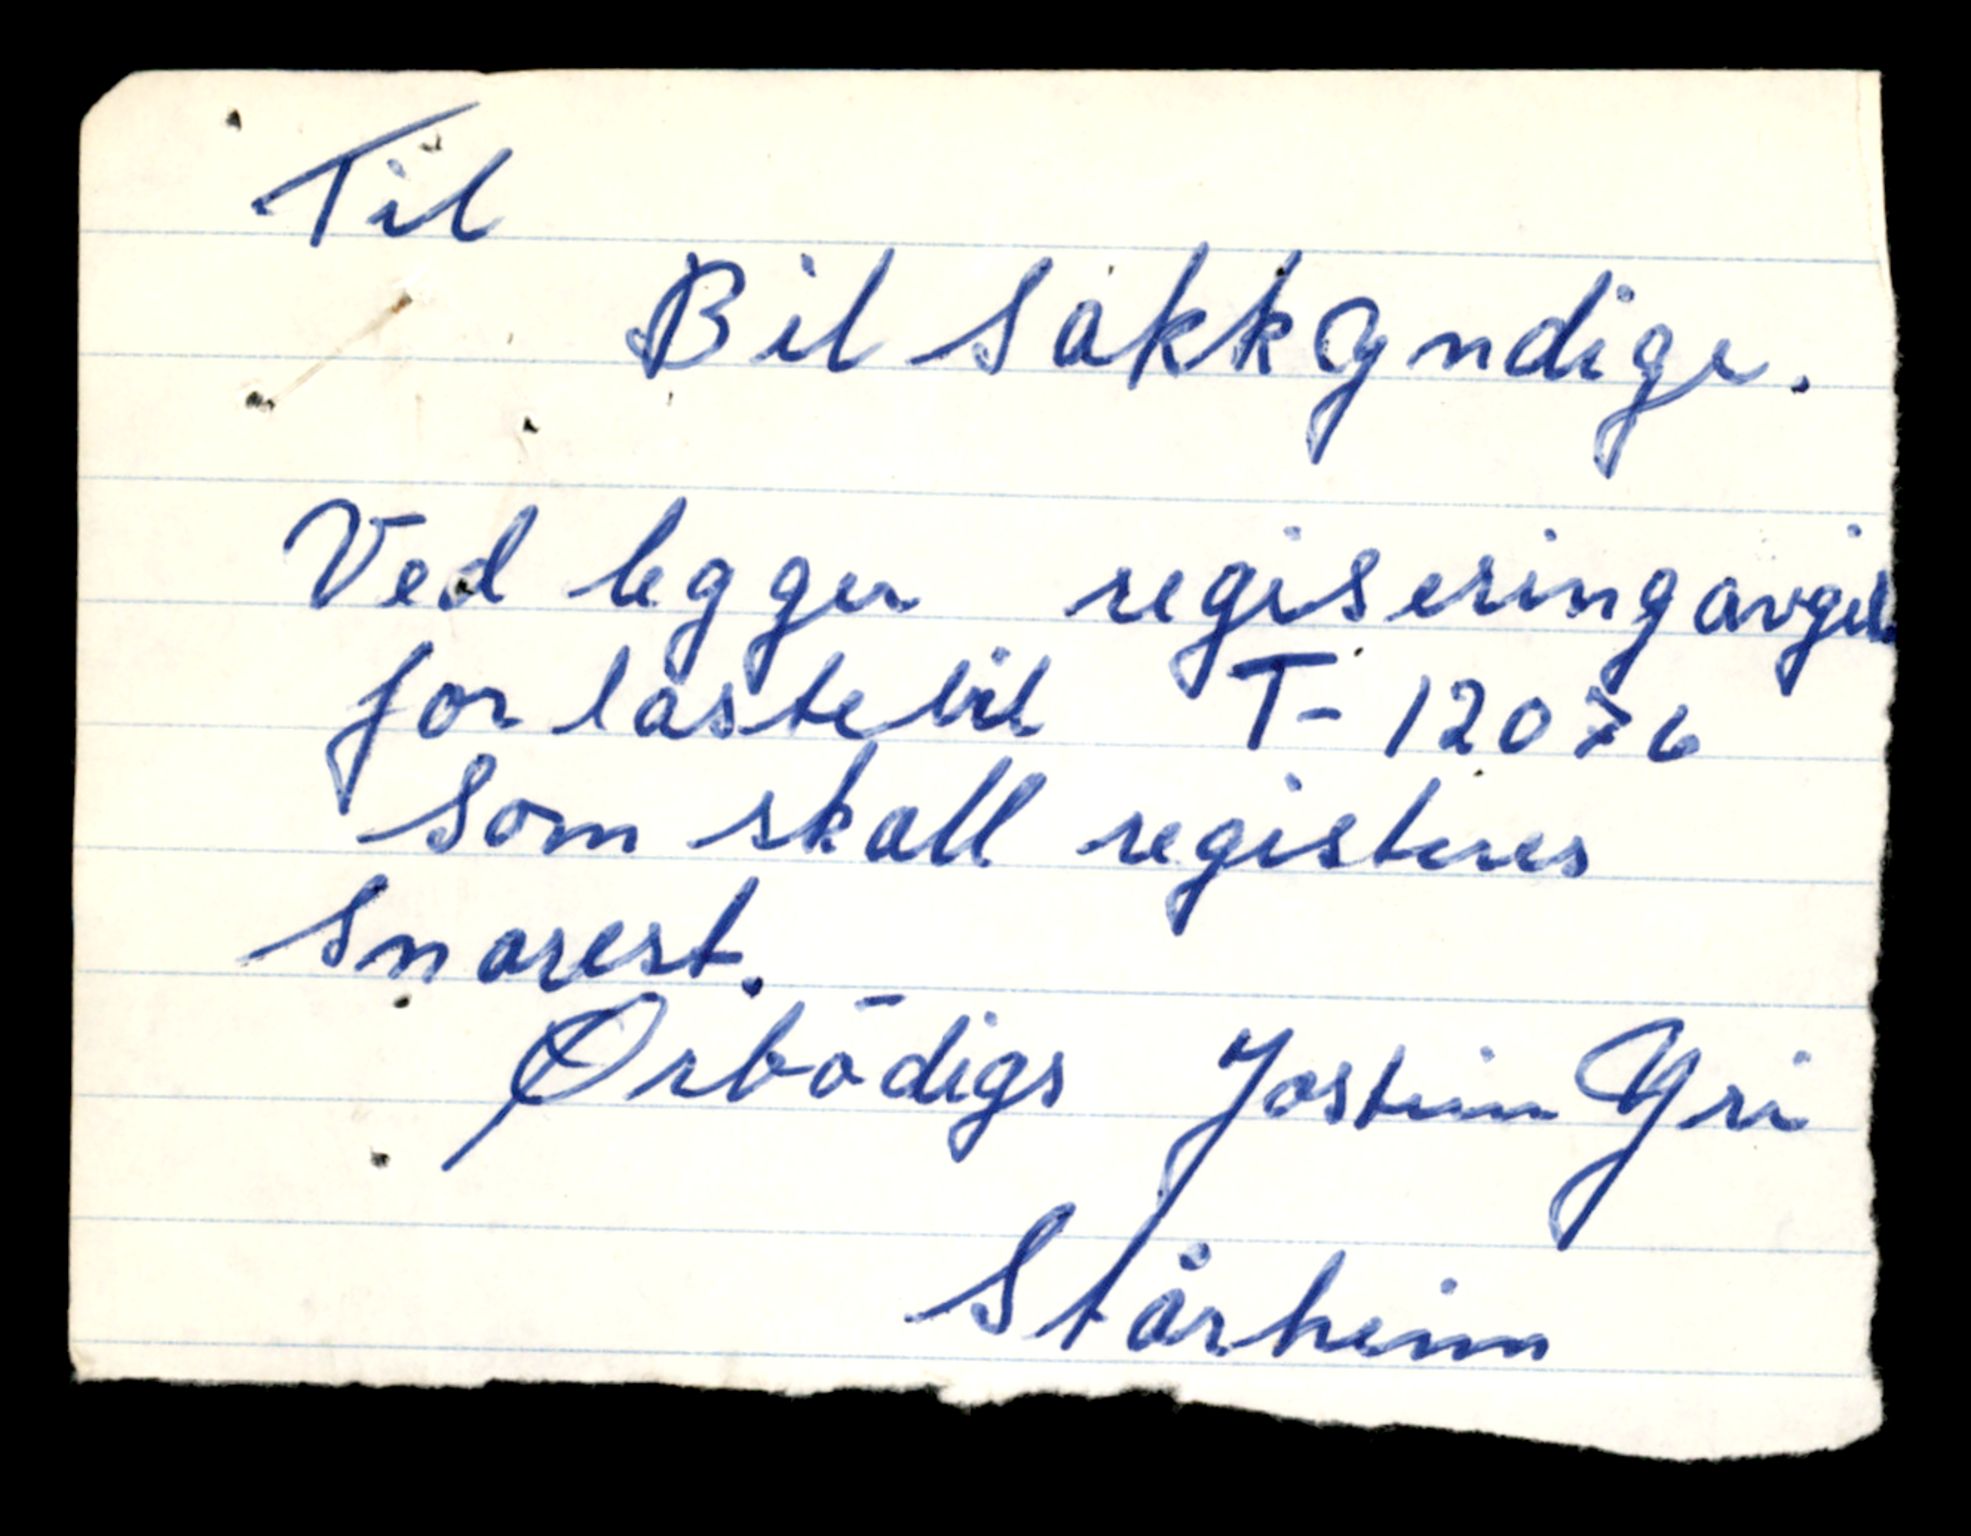 Til
Bil Sakkyndige.
Ved legger regisering avgil
for lastebil T- 12076
Som skall registeres
Snarest.
Ørbödigs Jostein Yri
Stårheim